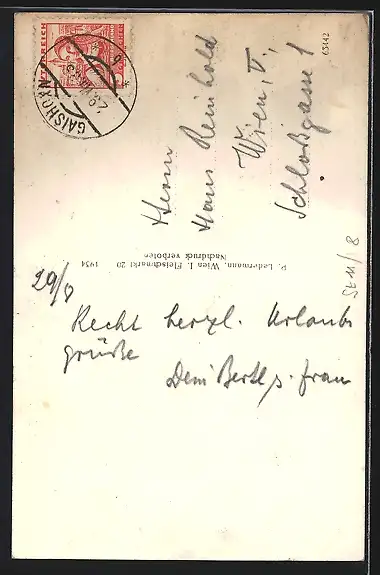 ÖSTERREICH
GAISHORN
63442
Herrn
Hans Reinhold
Wien, V.
Schloßgasse 1
P. Ledermann, Wien I. Fleischmarkt 20 1934
Nachdruck verboten
29/8
Recht herzl. Urlaubs
grüße
Dein Bertl s. frau